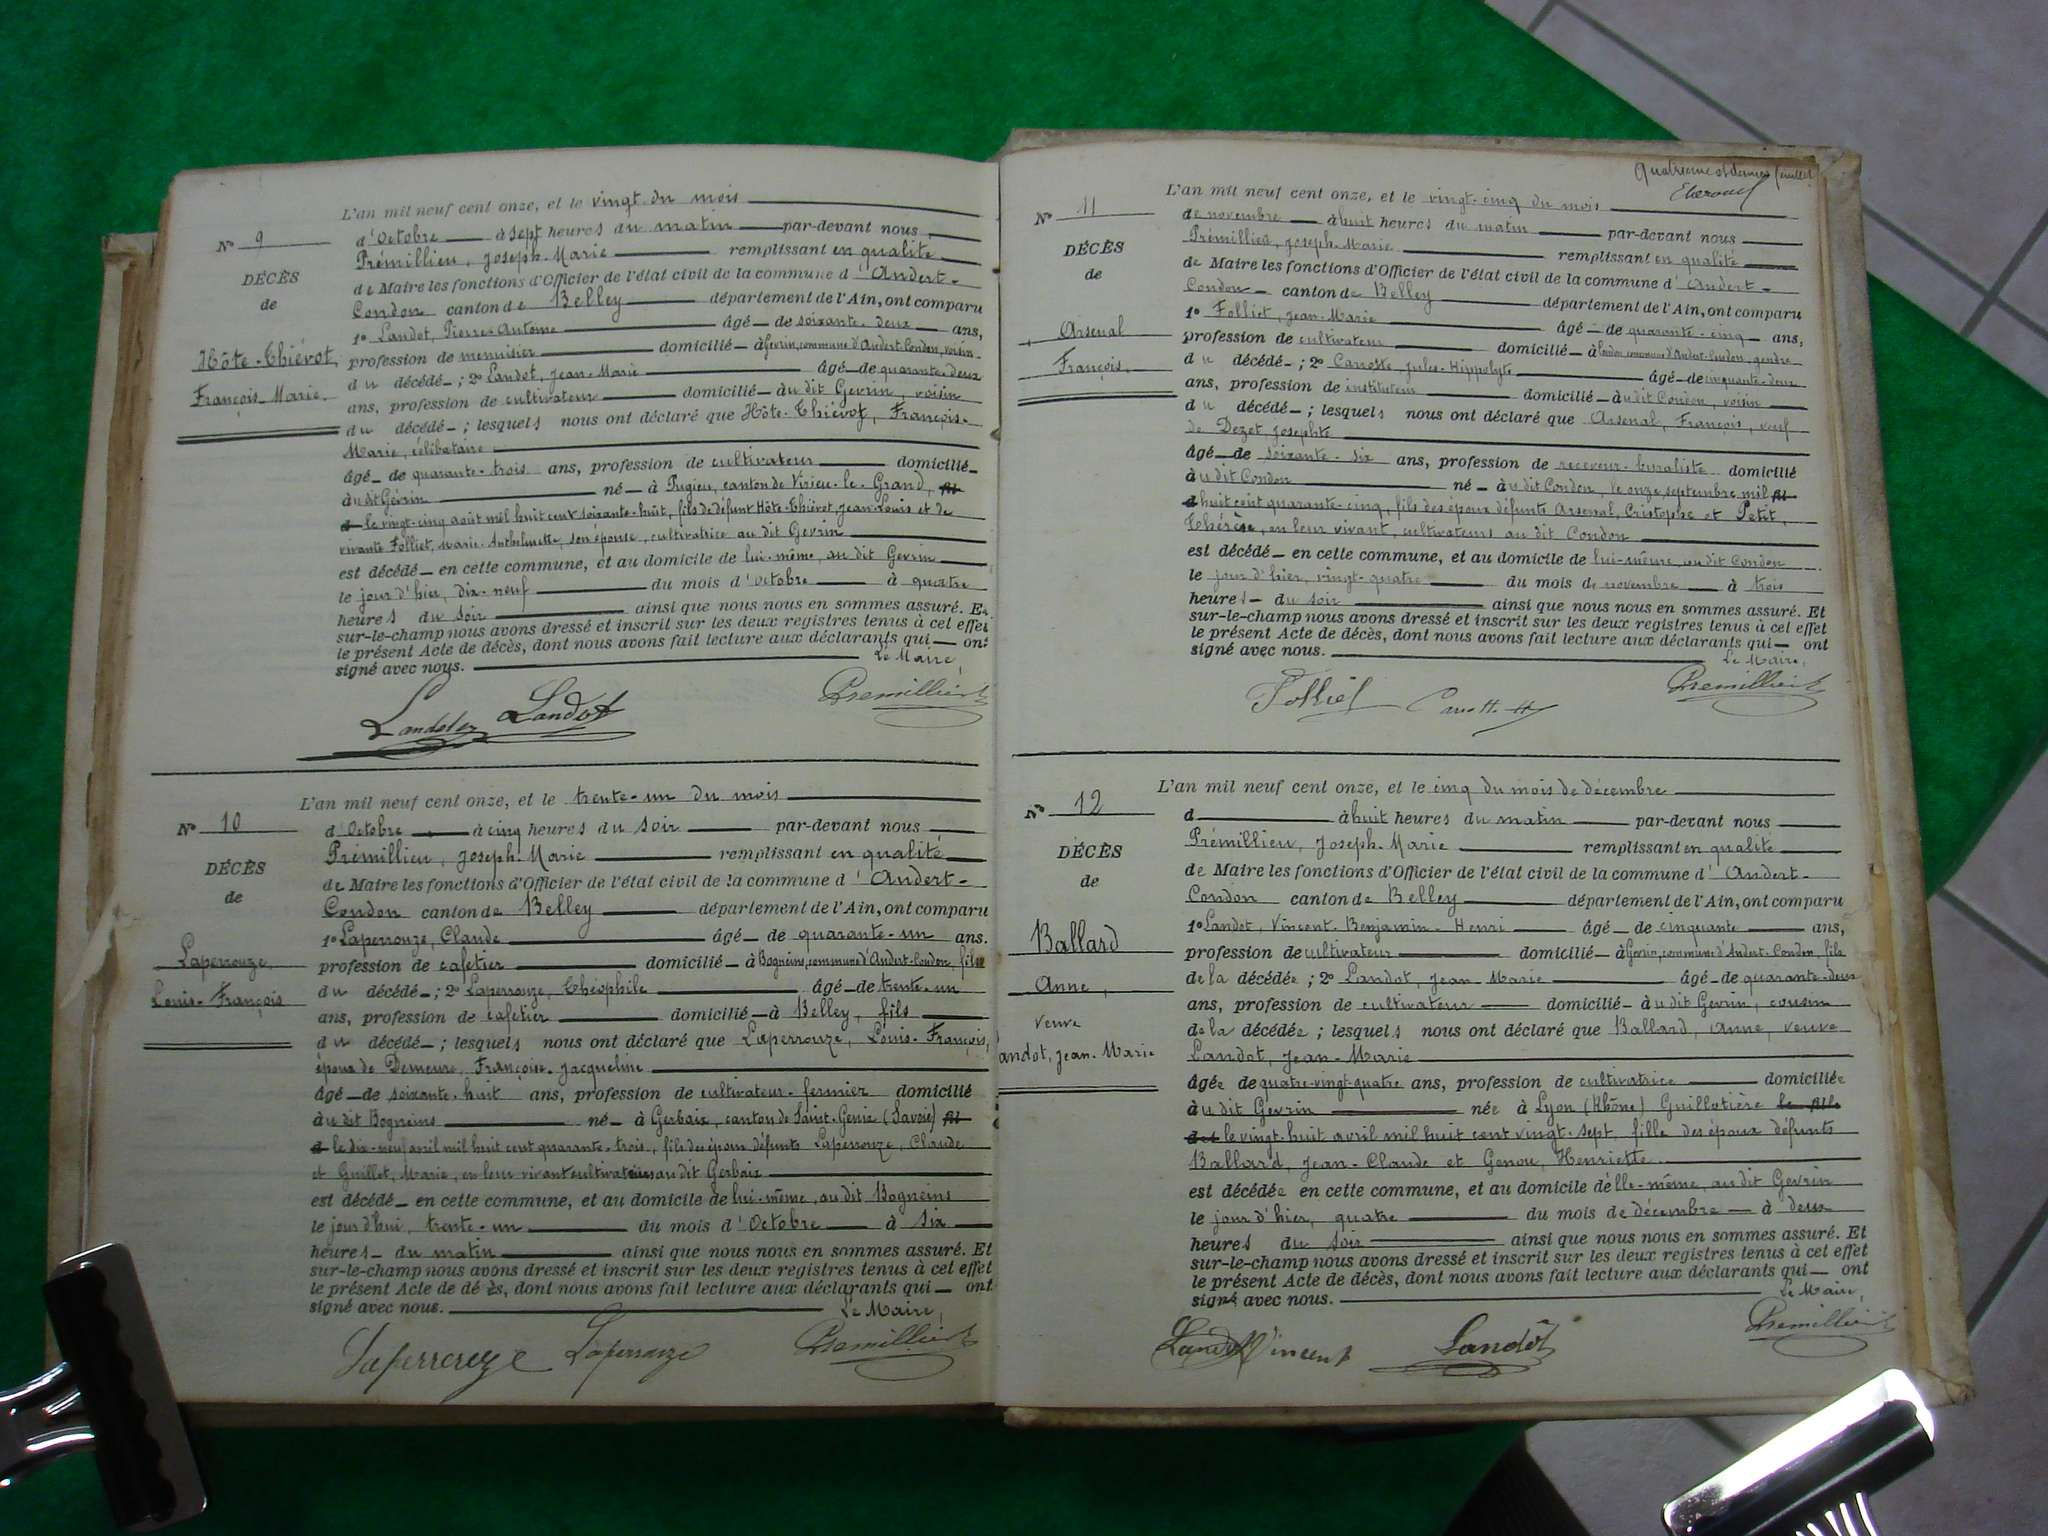 L'an mil neuf cent onze, et le vingt du mois
N° 9
d'Octobre à sept heures du matin par-devant nous
Prémillieu, Joseph-Marie remplissant en qualité
DÉCÈS
de Maire les fonctions d'Officier de l'état civil de la commune d'Andert-
de
Condon canton de Belley département de l'Ain, ont comparu
1° Landot, Pierre-Antoine âgé de soixante-deux ans,
Hôte-Thiévot,
profession de menuisier domicilié à Gevrin, commune d'Andert-Condon, voisin
du décédé ; 2° Landot, Jean-Marie âgé de quarante-deux
François-Marie
ans, profession de cultivateur domicilié à u dit Gevrin, voisin
du décédé ; lesquels nous ont déclaré que Hôte-Thiévot, François-
Marie, célibataire
âgé de quarante-trois ans, profession de cultivateur domicilié
à u dit Gévrin né à Pugieu, canton de Virieu-le-Grand, fil
d le vingt-cinq août mil huit cent soixante-huit, fils de défunt Hôte-Thiévot, Jean-Louis et de
vivante Folliet, Marie-Anthelmette, son épouse, cultivatrice au dit Gevrin
est décédé en cette commune, et au domicile de lui-même, au dit Gevrin
le jour d'hier, dix-neuf du mois d'octobre à quatre
heures du soir ainsi que nous nous en sommes assuré. Et
sur-le-champ nous avons dressé et inscrit sur les deux registres tenus à cet effet
le présent Acte de décès, dont nous avons fait lecture aux déclarants qui ont
signé avec nous. Le Maire,
Landot Landot Premillieu
L'an mil neuf cent onze, et le trente-un du mois
N° 10
d'Octobre à cinq heures du soir par-devant nous
Prémillieu, Joseph-Marie remplissant en qualité
DÉCÈS
de Maire les fonctions d'Officier de l'état civil de la commune d'Andert-
de
Condon canton de Belley département de l'Ain, ont comparu
1° Laperrouze, Claude âgé de quarante-un ans.
Laperrouze,
profession de cafetier domicilié à Bogneins, commune d'Andert-Condon, fils
du décédé ; 2° Laperrouze, Théophile âgé de trente-un
Louis-François
ans, profession de cafetier domicilié à Belley, fils
du décédé ; lesquels nous ont déclaré que Laperrouze, Louis-François,
époux de Demeure, Françoise-Jacqueline
âgé de soixante-huit ans, profession de cultivateur-fermier domicilié
à u dit Bogneins né à Gerbaix, canton de Saint-Genix (Savoie) fil
d le dix-neuf avril mil huit cent quarante-trois, fils des époux défunts Laperrouze, Claude
et Guillet, Marie, en leur vivant cultivateurs au dit Gerbaix
est décédé en cette commune, et au domicile de lui-même, au dit Bogneins
le jour d'hui, trente-un du mois d'Octobre à six
heures du matin ainsi que nous nous en sommes assuré. Et
sur-le-champ nous avons dressé et inscrit sur les deux registres tenus à cet effet
le présent Acte de décès, dont nous avons fait lecture aux déclarants qui ont
signé avec nous. Le Maire,
Laperrouze Laperrouze Premillieu
Quatrième et dernier feuillet
L'an mil neuf cent onze, et le vingt-cinq du mois
N° 11
de novembre à huit heures du matin par-devant nous
Prémillieu, Joseph-Marie remplissant en qualité
DÉCÈS
de Maire les fonctions d'Officier de l'état civil de la commune d'Andert-
de
Condon canton de Belley département de l'Ain, ont comparu
1° Folliet, Jean-Marie âgé de quarante-cinq ans,
Arsenal
profession de cultivateur domicilié à Condon, commune d'Andert-Condon, gendre
du décédé ; 2° Carotte, Jules-Hippolyte âgé de cinquante-deux
François,
ans, profession de instituteur domicilié à u dit Condon, voisin
du décédé ; lesquels nous ont déclaré que Arsenal, François, veuf
de Dezet, Josephte
âgé de soixante-six ans, profession de receveur-buraliste domicilié
à u dit Condon né à u dit Condon, le onze septembre mil fil
d huit cent quarante-cinq, fils des époux défunts Arsenal, Cristophe et Petit,
Thérèse, en leur vivant, cultivateurs au dit Condon
est décédé en cette commune, et au domicile de lui-même, au dit Condon
le jour d'hier, vingt-quatre du mois de novembre à trois
heures du soir ainsi que nous nous en sommes assuré. Et
sur-le-champ nous avons dressé et inscrit sur les deux registres tenus à cet effet
le présent Acte de décès, dont nous avons fait lecture aux déclarants qui ont
signé avec nous. Le Maire,
Folliet Carotte Premillieu
L'an mil neuf cent onze, et le cinq du mois de décembre
N° 12
d à huit heures du matin par-devant nous
Prémillieu, Joseph-Marie remplissant en qualité
DÉCÈS
de Maire les fonctions d'Officier de l'état civil de la commune d'Andert-
de
Condon canton de Belley département de l'Ain, ont comparu
1° Landot, Vincent-Benjamin-Henri âgé de cinquante ans,
Ballard
profession de cultivateur domicilié à Gevrin, commune d'Andert-Condon, fils
de la décédée ; 2° Landot, Jean-Marie âgé de quarante-deux
Anne,
ans, profession de cultivateur domicilié à u dit Gevrin, cousin
veuve
de la décédée ; lesquels nous ont déclaré que Ballard, Anne, veuve
andot, Jean-Marie
Landot, Jean-Marie
âgée de quatre-vingt-quatre ans, profession de cultivatrice domiciliée
à u dit Gevrin née à Lyon (Rhône) Guillotière le fille
des le vingt-huit avril mil huit cent vingt-sept, fille des époux défunts
Ballard, Jean-Claude et Genou, Henriette
est décédée en cette commune, et au domicile d'elle-même, au dit Gevrin
le jour d'hier, quatre du mois de décembre à deux
heures du soir ainsi que nous nous en sommes assuré. Et
sur-le-champ nous avons dressé et inscrit sur les deux registres tenus à cet effet
le présent Acte de décès, dont nous avons fait lecture aux déclarants qui ont
signé avec nous. Le Maire,
Landot Vincent Landot Premillieu